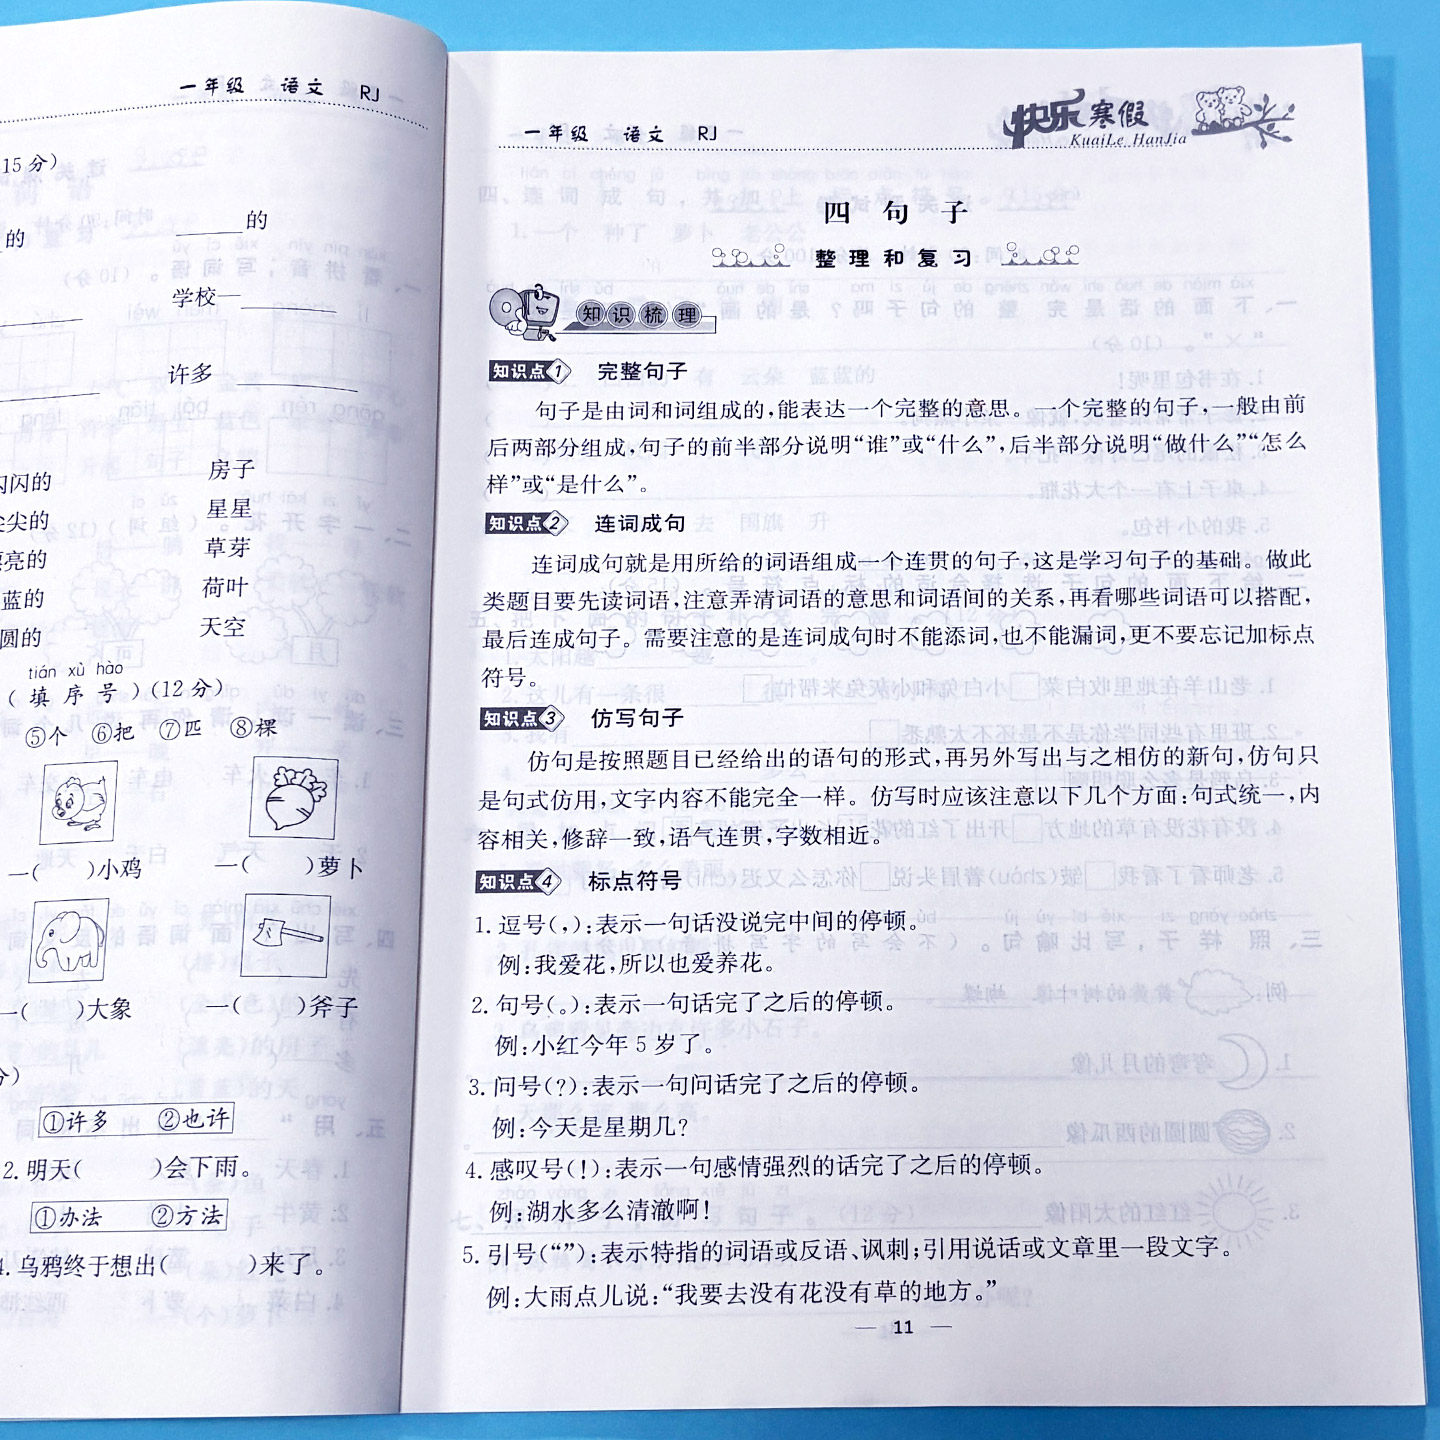 一年级 语文 RJ
15 分)
的
的
学校—
许多
闪闪的
房子
尖尖的
星星
漂亮的
草芽
蓝的
荷叶
圆的
天空
tián xù hào
(填序号)(12分)
⑤个 ⑥把 ⑦匹 ⑧棵
一( )小鸡 一( )萝卜
一( )大象 一( )斧子
分)
①许多 ②也许
2.明天( )会下雨。
①办法 ②方法
4.乌鸦终于想出( )来了。
一年级 语文 RJ
快乐寒假
KuaiLe HanJia
四 句 子
整理和复习
知识梳理
知识点1 完整句子
句子是由词和词组成的,能表达一个完整的意思。一个完整的句子,一般由前
后两部分组成,句子的前半部分说明“谁”或“什么”,后半部分说明“做什么”“怎么
样”或“是什么”。
知识点2 连词成句
连词成句就是用所给的词语组成一个连贯的句子,这是学习句子的基础。做此
类题目要先读词语,注意弄清词语的意思和词语间的关系,再看哪些词语可以搭配,
最后连成句子。需要注意的是连词成句时不能添词,也不能漏词,更不要忘记加标点
符号。
知识点3 仿写句子
仿句是按照题目已经给出的语句的形式,再另外写出与之相仿的新句,仿句只
是句式仿用,文字内容不能完全一样。仿写时应该注意以下几个方面:句式统一,内
容相关,修辞一致,语气连贯,字数相近。
知识点4 标点符号
1.逗号(,):表示一句话没说完中间的停顿。
例:我爱花,所以也爱养花。
2.句号(。):表示一句话完了之后的停顿。
例:小红今年5岁了。
3.问号(?):表示一句问话完了之后的停顿。
例:今天是星期几?
4.感叹号(!):表示一句感情强烈的话完了之后的停顿。
例:湖水多么清澈啊!
5.引号(“”):表示特指的词语或反语、讽刺;引用说话或文章里一段文字。
例:大雨点儿说:“我要去没有花没有草的地方。”
— 11 —